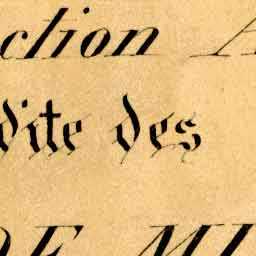 ction A
dite des
DE MI